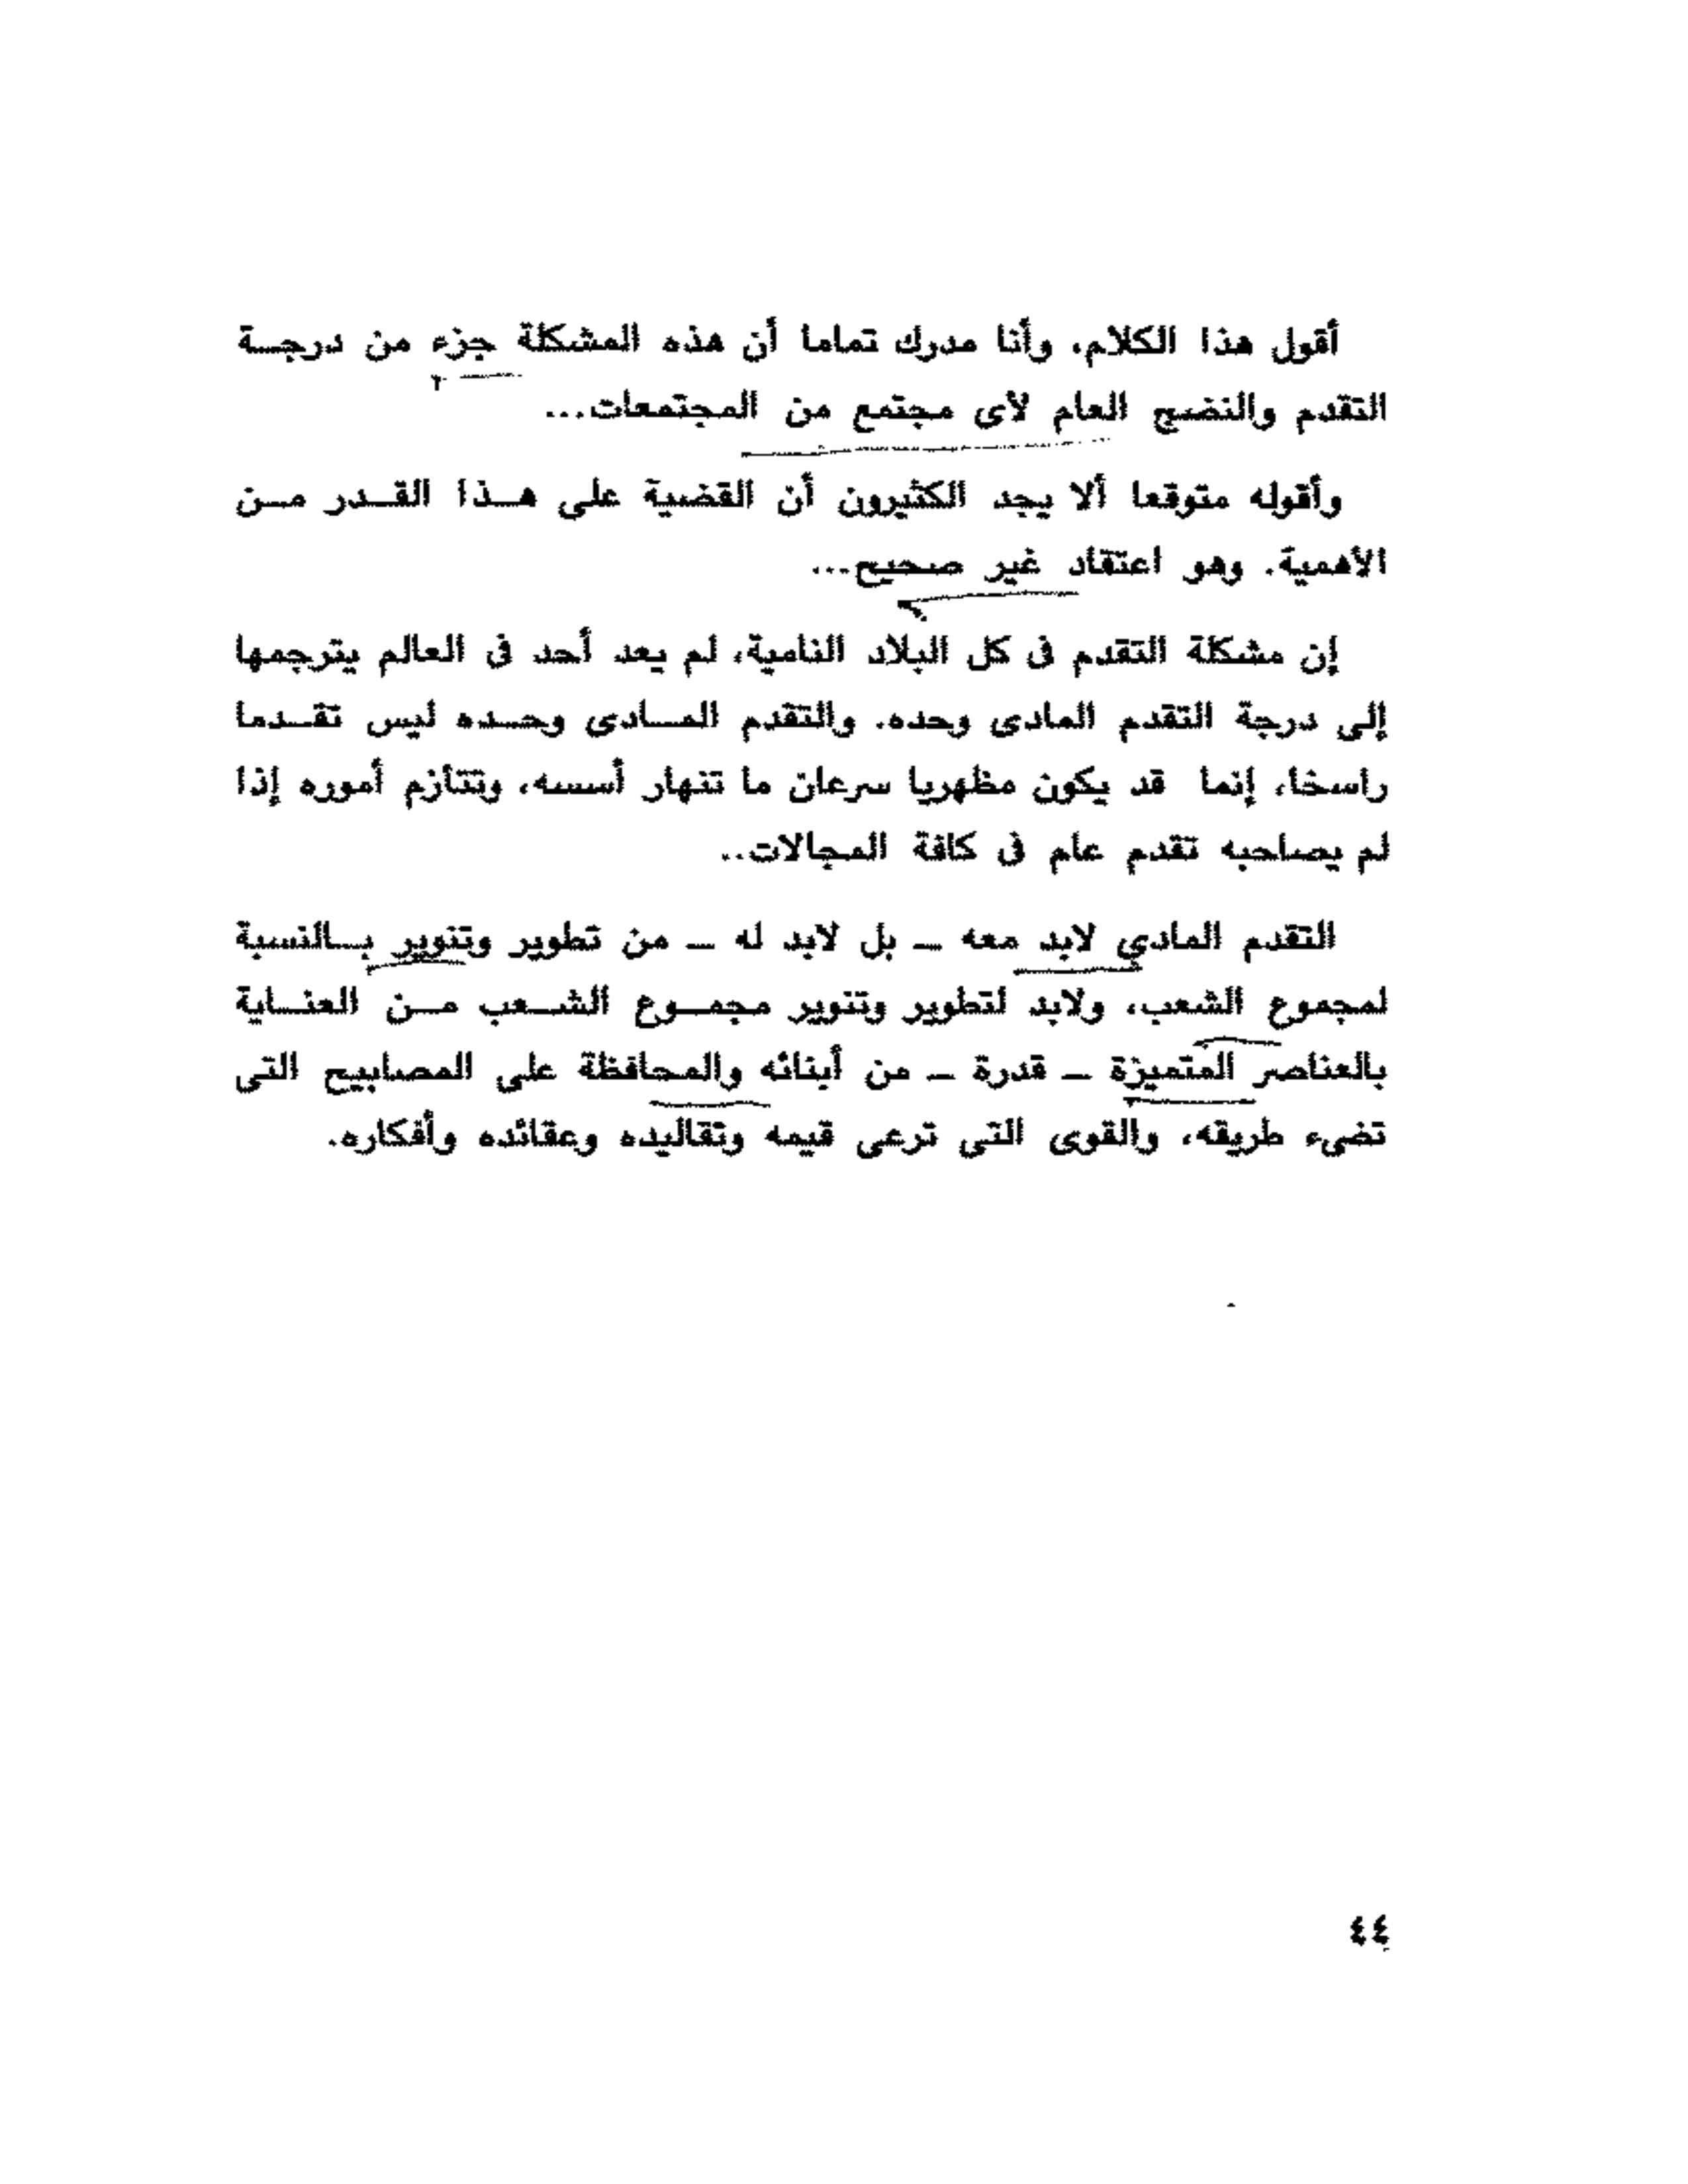 أقول هذا الكلام، وأنا مدرك تماما أن هذه المشكلة جزء من درجـــة
التقدم والنضج العام لأى مجتمع من المجتمعات...
وأقوله متوقعا ألا يجد الكثيرون أن القضية على هـــذا القـــدر مـــن
الأهمية. وهو اعتقاد غير صحيح...
إن مشكلة التقدم فى كل البلاد النامية، لم يعد أحد فى العالم يترجمها
إلى درجة التقدم المادى وحده. والتقدم المـــادى وحـــده ليس تقـــدما
راسخا، إنما قد يكون مظهريا سرعان ما تنهار أسسه، وتتأزم أموره إذا
لم يصاحبه تقدم عام فى كافة المجالات..
التقدم المادي لابد معه ــ بل لابد له ــ من تطوير وتنوير بـــالنسبة
لمجموع الشعب، ولابد لتطوير وتنوير مجمـــوع الشـــعب مـــن العنـــاية
بالعناصر المتميزة ــ قدرة ــ من أبنائه والمحافظة على المصابيح التى
تضىء طريقه، والقوى التى ترعى قيمه وتقاليده وعقائده وأفكاره.
٤٤